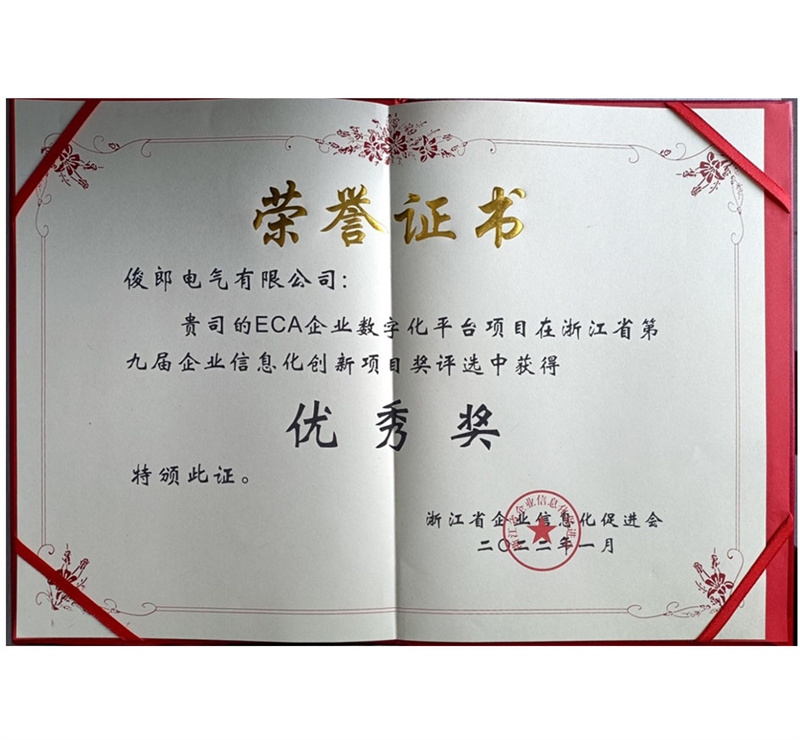 荣誉证书
俊郎电气有限公司：
贵司的ECA企业数字化平台项目在浙江省第
九届企业信息化创新项目奖评选中获得
优秀奖
特颁此证。
浙江省企业信息化促进会
二〇二二年一月